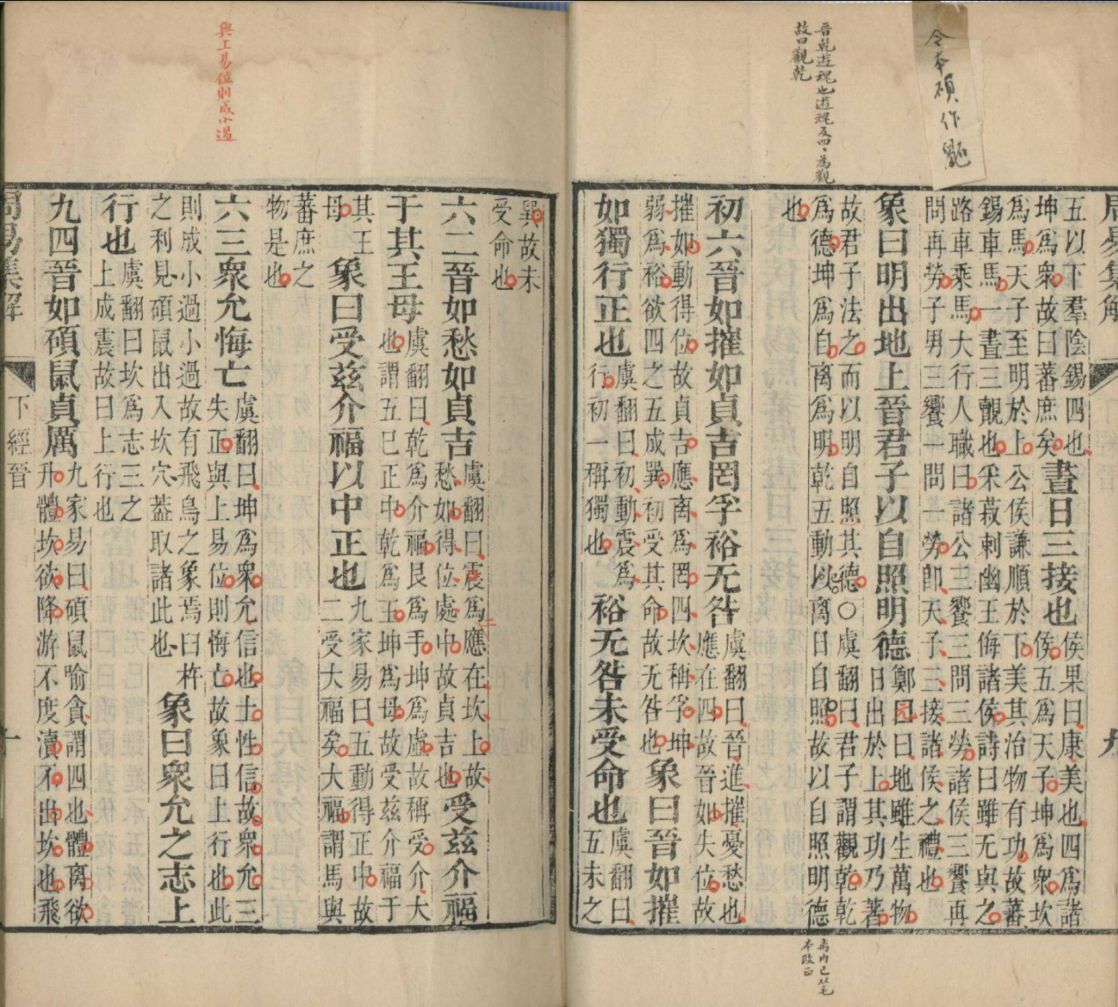 今本碩作鼫
晉乾遊魂也遊魂及四爲觀
故曰觀乾
周易集解
九
五以下羣陰錫四也晝日三接也侯果曰康美也四爲諸
坤爲衆故曰蕃庶矣侯五爲天子坤爲衆坎
爲馬天子至明於上公侯謙順於下美其治物有功故蕃
錫車馬一晝三覿也采菽刺幽王侮諸侯詩曰雖无與之
路車乘馬大行人職曰諸公三饗三問三勞諸侯三饗再
問再勞子男三饗一問一勞卽天子三接諸侯之禮也
象曰明出地上晉君子以自照明德鄭曰地雖生萬物
日出於上其功乃著
故君子法之而以明自照其德○虞翻曰君子謂觀乾乾
爲德坤爲自離爲明乾五動以離日自照故以自照明德
也
初六晉如摧如貞吉罔孚裕无咎虞翻曰晉進摧憂愁也
應在四故晉如失位故
摧如動得位故貞吉應離爲罔四坎稱孚坤
弱爲裕欲四之五成巽初受其命故无咎也象曰晉如摧
如獨行正也虞翻曰初動震爲
行初一稱獨也裕无咎未受命也虞翻曰
五未之
與工易位則成小過
巽故未
受命也
六二晉如愁如貞吉虞翻曰震爲應在坎上故
愁如得位處中故貞吉也受茲介福
于其王母虞翻曰乾爲介福艮爲手坤爲虛故稱受介大
也謂五已正中乾爲王坤爲母故受茲介福于
其王
母象曰受茲介福以中正也九家易曰五動得正中故
二受大福矣大福謂馬與
蕃庶之
物是也
六三衆允悔亡虞翻曰坤爲衆允信也土性信故衆允三
失正與上易位則悔亡故象曰上行也此
則成小過小過故有飛鳥之象焉曰杵
之利見碩鼠出入坎穴蓋取諸此也象曰衆允之志上
行也虞翻曰坎爲志三之
上成震故曰上行也
九四晉如碩鼠貞厲九家易曰碩鼠喻貪謂四也體離欲
升體坎欲降游不度瀆不出坎也飛
周易集解
下經晉
十